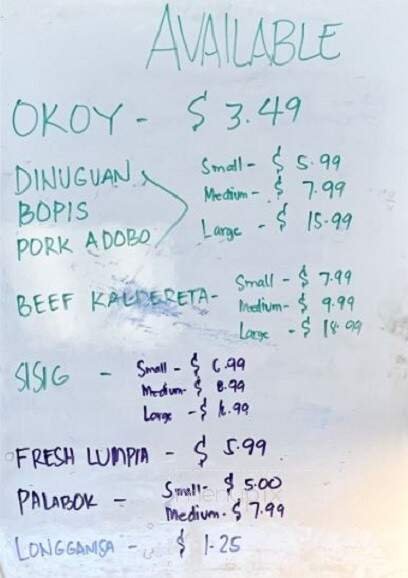 AVAILABLE
OKOY - $ 3.49
DINUGUAN
BOPIS
PORK ADOBO
Small - $ 5.99
Medium - $ 7.99
Large - $ 15.99
BEEF KALDERETA -
Small - $ 7.99
Medium - $ 9.99
Large - $ 18.99
SISIG -
Small - $ 6.99
Medium - $ 8.99
Large - $ 16.99
FRESH LUMPIA - $ 5.99
PALABOK -
Small - $ 5.00
Medium - $ 7.99
LONGGANISA - $ 1.25